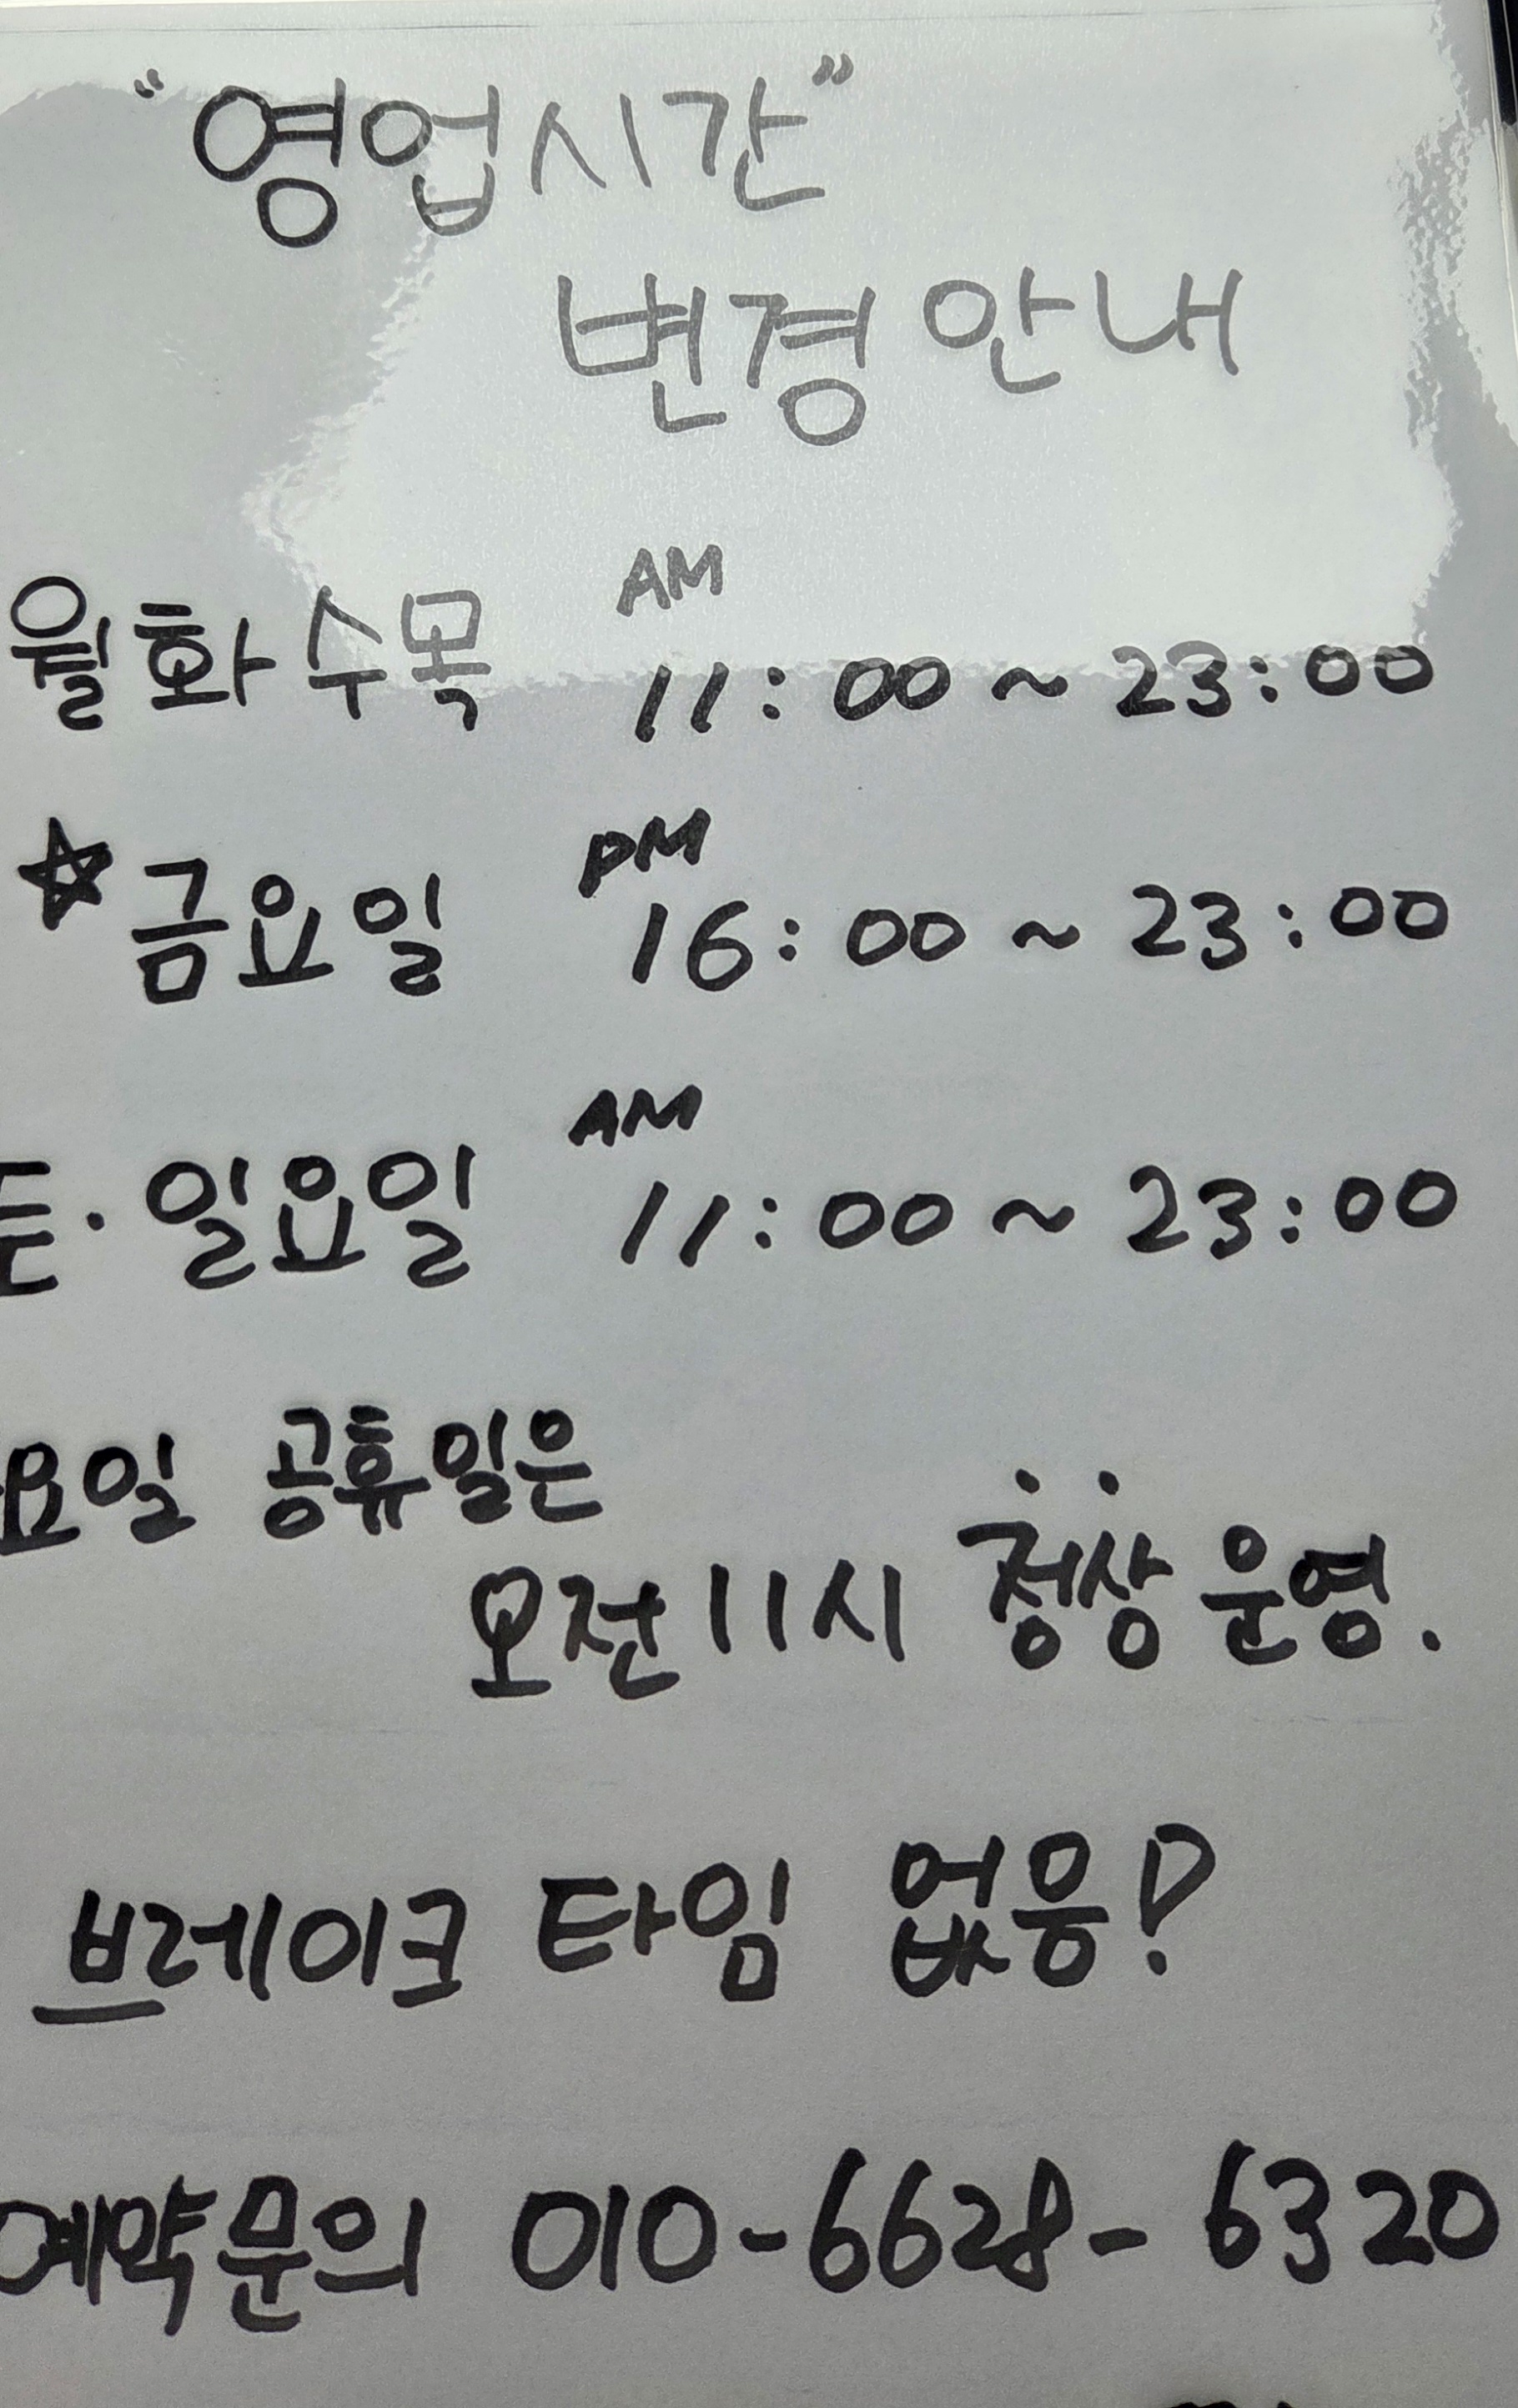 "영업시간"
변경 안내
월 화 수 목 AM 11:00 ~ 23:00
☆ 금요일 PM 16:00 ~ 23:00
토·일요일 AM 11:00 ~ 23:00
요일 공휴일은
오전 11시 정상 운영.
브레이크 타임 없음!
예약문의 010-6628-6320